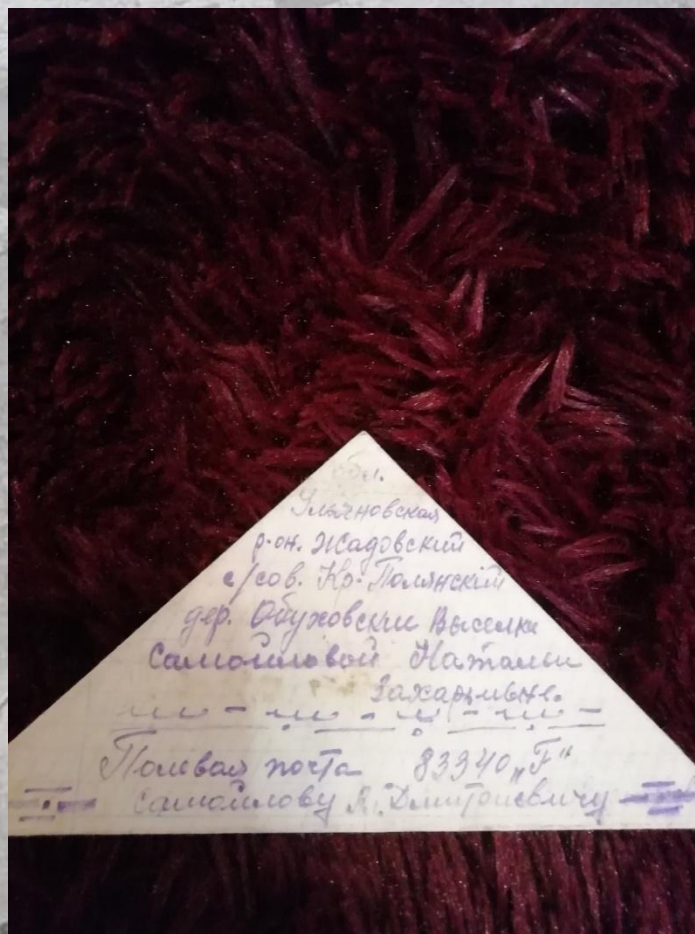 обл.
Ульяновская
р-он. Жадовский
с/сов. Кр-Полянский
дер. Обуховскии Выселки
Самойловой Натальи
Захарьевне.
Полевая почта 83940 „Г“
Самойлову Я. Дмитриевичу